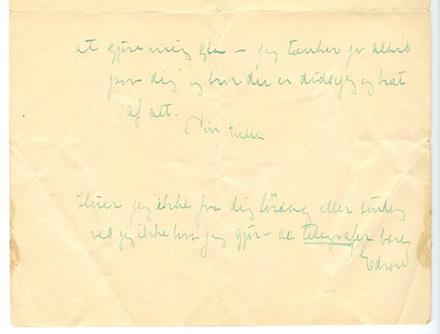 at gjøre mig gla – jeg tænker jo altid
paa dig og hvor du er dødssyg og træt
af alt.
Din
Hører jeg ikke fra dig lördag eller søndag
ved jeg ikke hva jeg gjør – saa telegrafer bare
Edvard